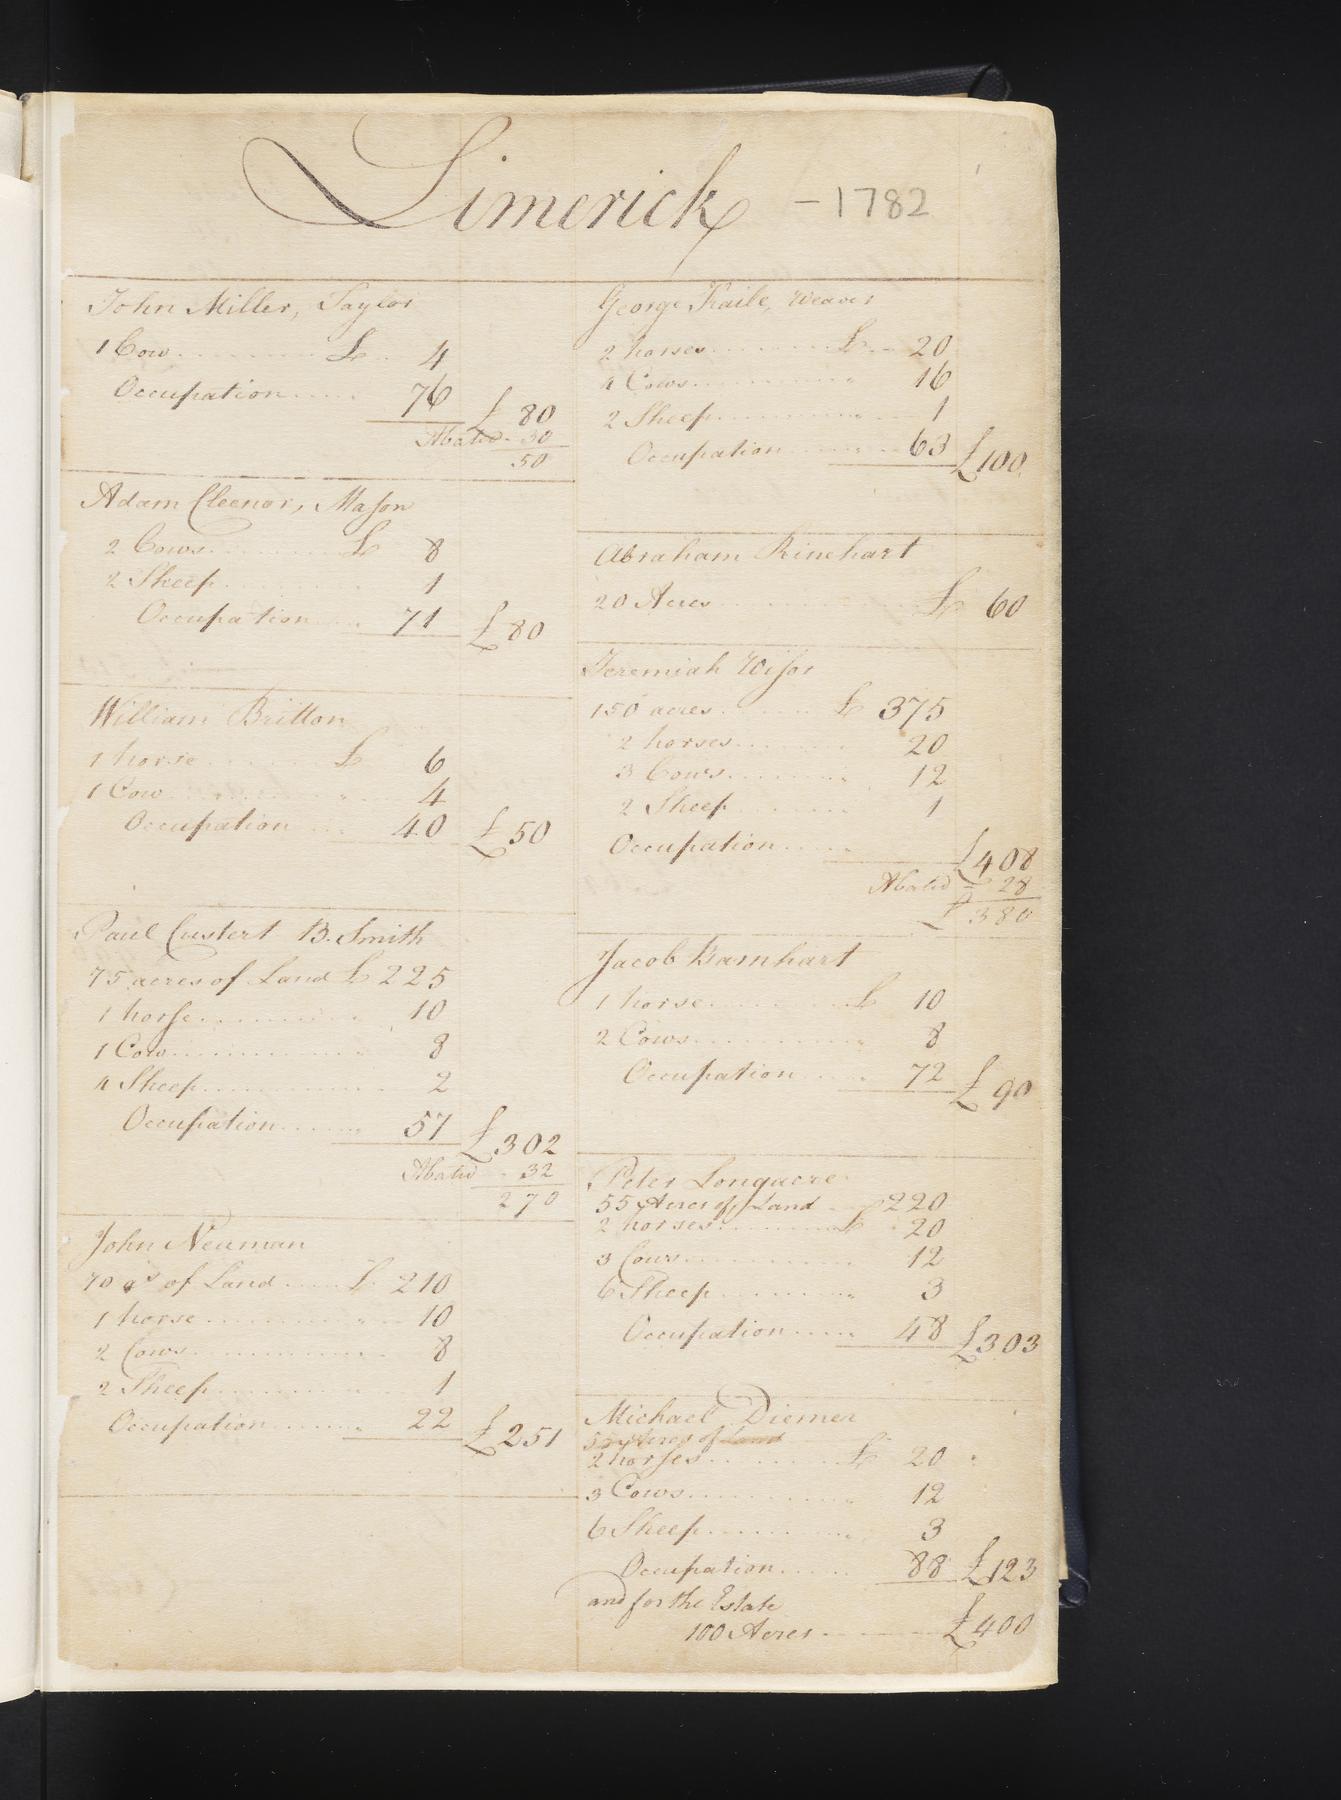 Limerick - 1782
John Miller, Taylor
1 Cow £ 4
Occupation 76 £ 80
Abated - 30
50
Adam Cleenor, Mason
2 Cows £ 8
2 Sheep 1
Occupation 71 £ 80
William Britton
1 horse £ 6
1 Cow 4
Occupation 40 £ 50
Paul Custert B. Smith
75 acres of Land £ 225
1 horse 10
1 Cow 8
4 Sheep 2
Occupation 57 £ 302
Abated - 32
270
John Neuman
70 as of Land £ 210
1 horse 10
2 Cows 8
2 Sheep 1
Occupation 22 £ 251
George Weaver
2 horses £ 20
4 Cows 16
2 Sheep 1
Occupation 63 £ 100
Abraham Rinehart
20 Acres £ 60
Jeremiah
150 acres £ 375
2 horses 20
3 Cows 12
2 Sheep 1
Occupation £ 408
Abated - 28
£ 380
Jacob Barnhart
1 horse £ 10
2 Cows 8
Occupation 72 £ 90
Peter Longacre
55 Acres of Land 220
2 horses £ 20
3 Cows 12
6 Sheep 3
Occupation 48 £ 303
Michael Diemer
55 Acres of Land
2 horses £ 20
3 Cows 12
6 Sheep 3
Occupation 88 £ 123
and for the Estate
100 Acres £ 400